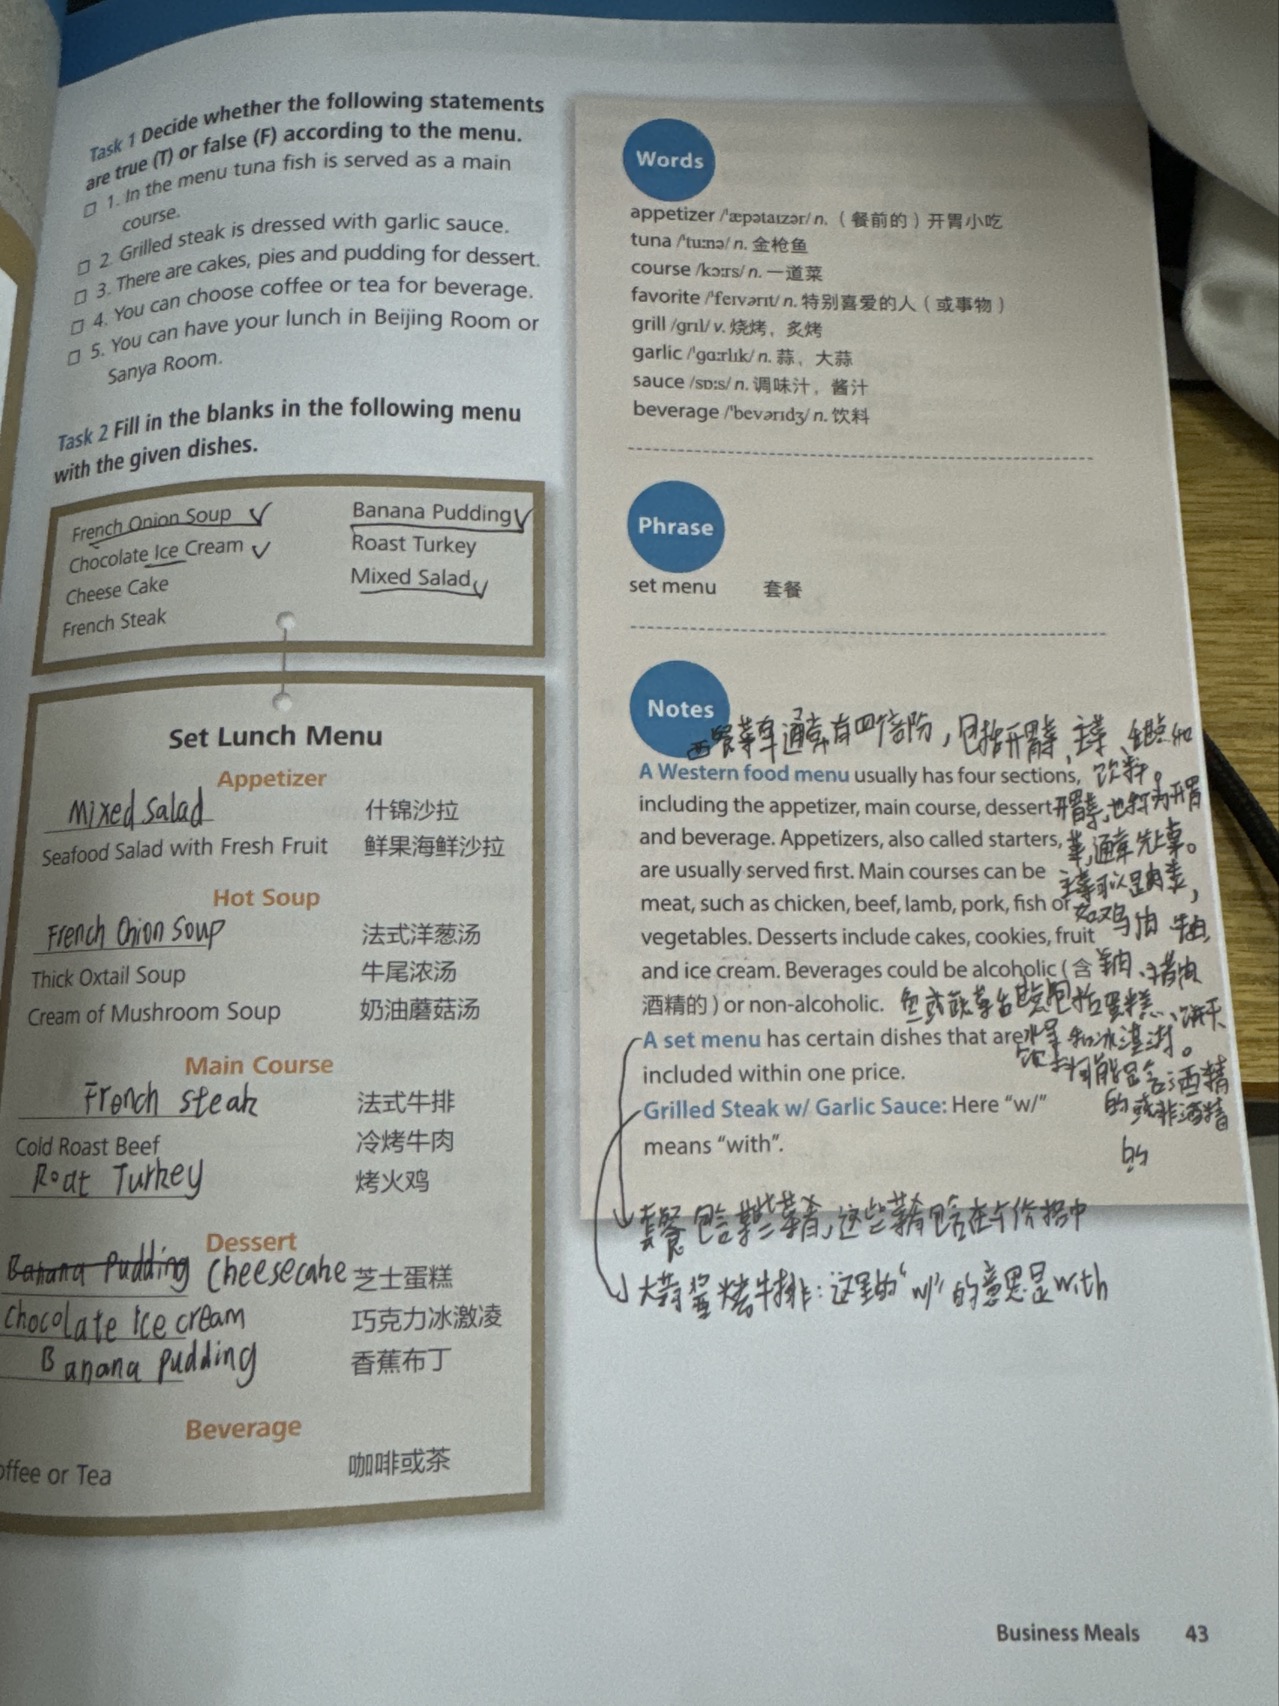 Task 1 Decide whether the following statements
are true (T) or false (F) according to the menu.
□ 1. In the menu tuna fish is served as a main
course.
□ 2. Grilled steak is dressed with garlic sauce.
□ 3. There are cakes, pies and pudding for dessert.
□ 4. You can choose coffee or tea for beverage.
□ 5. You can have your lunch in Beijing Room or
Sanya Room.
Task 2 Fill in the blanks in the following menu
with the given dishes.
French Onion Soup ✓
Chocolate Ice Cream ✓
Cheese Cake
French Steak
Banana Pudding ✓
Roast Turkey
Mixed Salad ✓
Set Lunch Menu
Appetizer
Mixed Salad 什锦沙拉
Seafood Salad with Fresh Fruit 鲜果海鲜沙拉
Hot Soup
French Onion Soup 法式洋葱汤
Thick Oxtail Soup 牛尾浓汤
Cream of Mushroom Soup 奶油蘑菇汤
Main Course
French steak 法式牛排
Cold Roast Beef 冷烤牛肉
Roat Turkey 烤火鸡
Dessert
Banana Pudding Cheesecake 芝士蛋糕
Chocolate Ice cream 巧克力冰激凌
Banana pudding 香蕉布丁
Beverage
offee or Tea 咖啡或茶
Words
appetizer /ˈæpətaɪzər/ n.（餐前的）开胃小吃
tuna /ˈtuːnə/ n. 金枪鱼
course /kɔːrs/ n. 一道菜
favorite /ˈfeɪvərɪt/ n. 特别喜爱的人（或事物）
grill /ɡrɪl/ v. 烧烤，炙烤
garlic /ˈɡɑːrlɪk/ n. 蒜，大蒜
sauce /sɒːs/ n. 调味汁，酱汁
beverage /ˈbevərɪdʒ/ n. 饮料
Phrase
set menu 套餐
Notes
西餐菜单通常有四个部份，包括开胃菜、主菜、甜点和
饮料。
A Western food menu usually has four sections,
including the appetizer, main course, dessert
and beverage. Appetizers, also called starters,
are usually served first. Main courses can be
meat, such as chicken, beef, lamb, pork, fish or
vegetables. Desserts include cakes, cookies, fruit
and ice cream. Beverages could be alcoholic (含
酒精的) or non-alcoholic.
开胃菜，也称为开胃
菜，通常先上桌。
主菜可以是肉类，
如鸡肉 牛肉
羊肉、猪肉
鱼或蔬菜 包括蛋糕、饼干
水果和冰淇淋。
饮料可能是含酒精
的或非酒精
的
A set menu has certain dishes that are
included within one price.
Grilled Steak w/ Garlic Sauce: Here “w/”
means “with”.
套餐包含某些菜肴，这些菜肴包含在一个价格中
大蒜酱烤牛排：这里的“w/”的意思是with
Business Meals 43